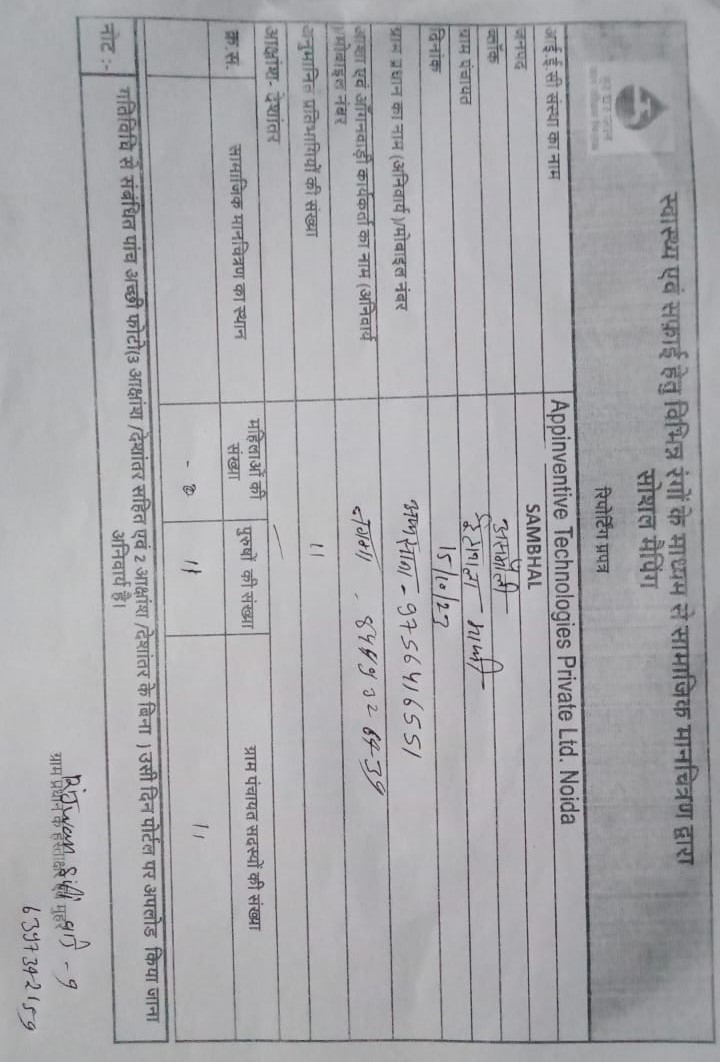 स्वास्थ्य एवं सफ़ाई हेतु विभिन्न रंगों के माध्यम से सामाजिक मानचित्रण द्वारा
सोशल मैपिंग
रिपोर्टिंग प्रपत्र
आई ई सी संस्था का नाम Appinventive Technologies Private Ltd. Noida
जनपद SAMBHAL
ब्लॉक असमोली
ग्राम पंचायत
दिनांक 15/10/23
ग्राम प्रधान का नाम (अनिवार्य )/मोबाइल नंबर 9756416551
आशा एवं आँगनवाड़ी कार्यकर्ता का नाम (अनिवार्य
)/मोबाइल नंबर
अनुमानित प्रतिभागियों की संख्या 11
आक्षांश- देशांतर
क्र.स. सामाजिक मानचित्रण का स्थान महिलाओं की संख्या पुरुषों की संख्या ग्राम पंचायत सदस्यों की संख्या
11 11
नोट :- गतिविधि से संबंधित पांच अच्छी फोटो(3 आक्षांश /देशांतर सहित एवं 2 आक्षांश /देशांतर के बिना ) उसी दिन पोर्टल पर अपलोड किया जाना
अनिवार्य है।
ग्राम प्रधान के हस्ताक्षर एवं मुहर